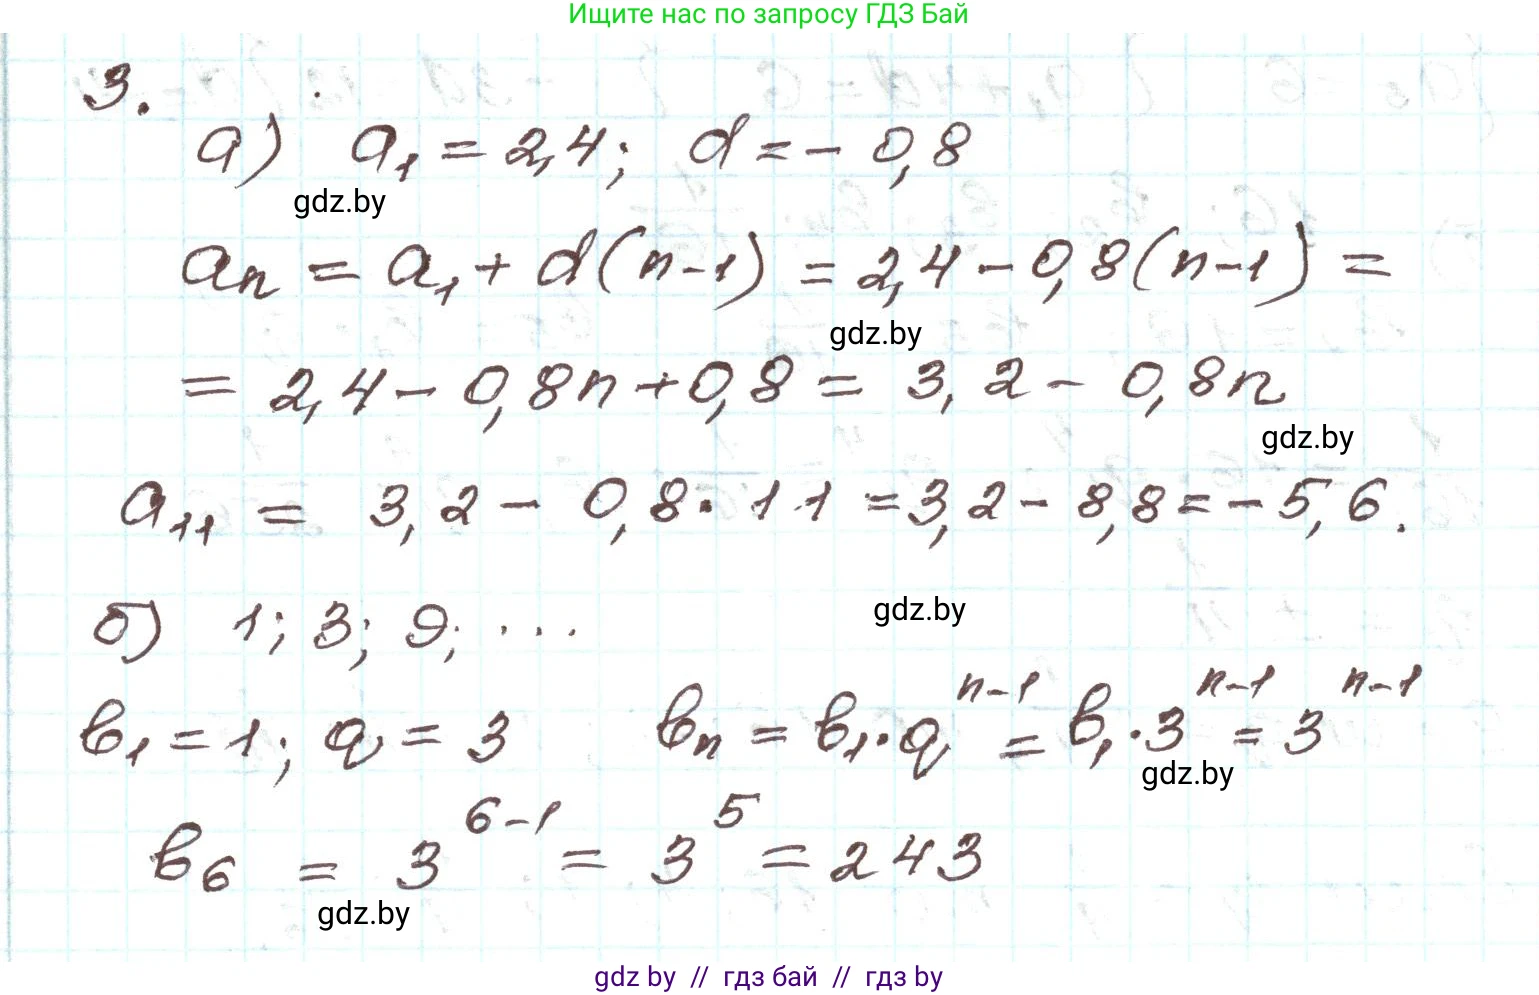 Ищите нас по запросу ГДЗ Бай
3.
а) a₁ = 2,4; d = - 0,8
gdz.by
aₙ = a₁ + d(n-1) = 2,4 - 0,8(n-1) =
gdz.by
= 2,4 - 0,8n + 0,8 = 3,2 - 0,8n
gdz.by
a₁₁ = 3,2 - 0,8·11 = 3,2 - 8,8 = -5,6.
б) 1; 3; 9; ...
gdz.by
b₁ = 1; q = 3 bₙ = b₁·qⁿ⁻¹ = b₁·3ⁿ⁻¹ = 3ⁿ⁻¹
gdz.by
b₆ = 3⁶⁻¹ = 3⁵ = 243
gdz.by
gdz by // гдз бай // гдз by